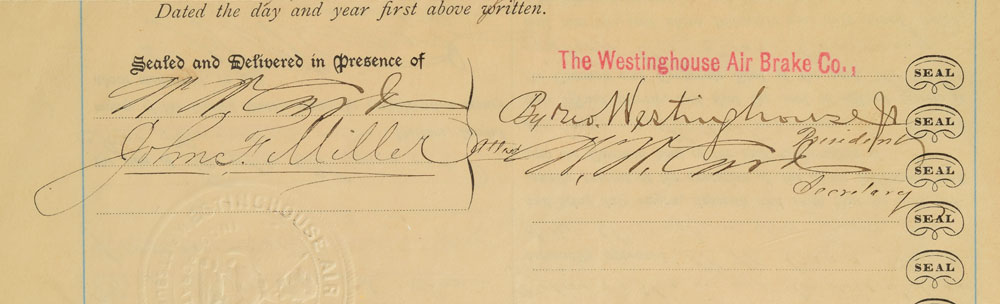 Dated the day and year first above written.
Sealed and Delivered in Presence of
W W Card
John F. Miller
Attest
The Westinghouse Air Brake Co.,
By Geo. Westinghouse Jr
President
W. W. Card
Secretary
SEAL
SEAL
SEAL
SEAL
SEAL
WESTINGHOUSE AIR